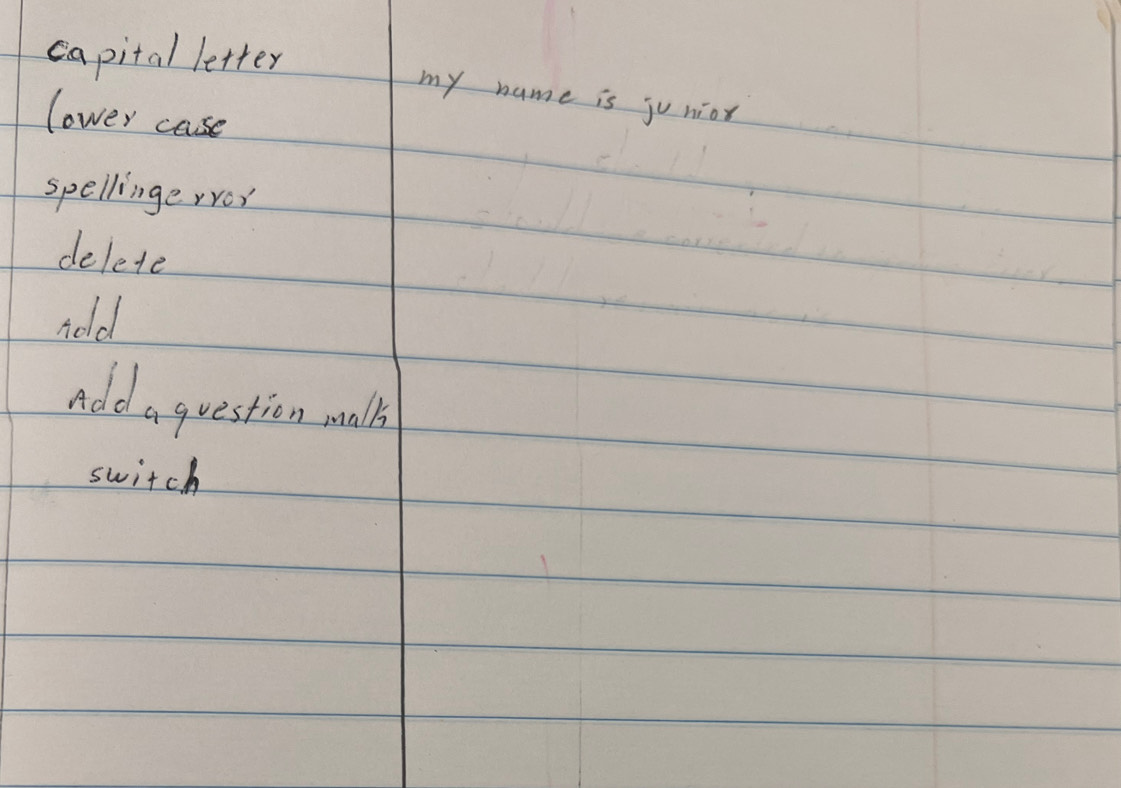 capital letter
my name is junior
lower case
spellingerror
delete
Add
Add a question malk
switch